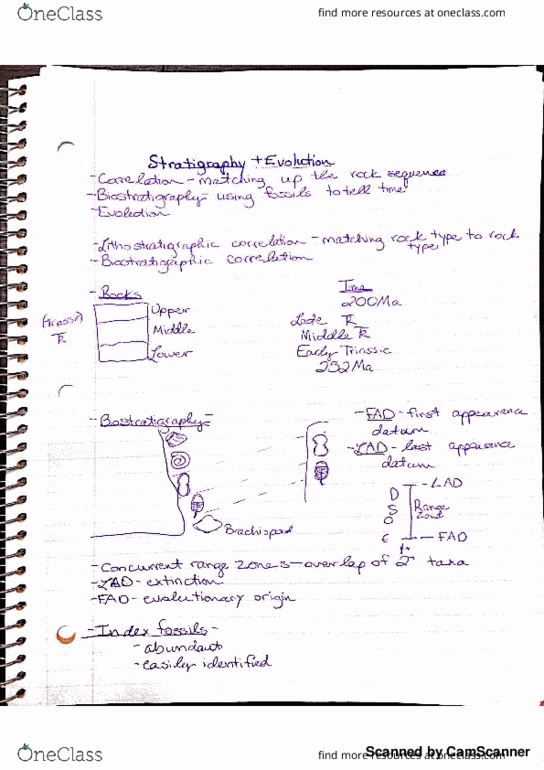 OneClass
find more resources at oneclass.com
Stratigraphy + Evolution
- Correlation - matching up the rock sequence
- Biostratigraphy - using fossils to tell time
- Evolution
- Lithostratigraphic correlation - matching rock type to rock type
- Biostratigraphic correlation
- Rocks
Upper
Middle
Lower
Time
200Ma
Late TR
Middle TR
Early Triassic
252Ma
- Biostratigraphy -
Brachiopod
- FAD - first appearance
datum
- LAD - last appearance
datum
LAD
Range
Zone
FAD
D
S
O
Є
- Concurrent range zones - overlap of 2+ taxa
- LAD - extinction
- FAD - evolutionary origin
- Index fossils -
- abundant
- easily identified
OneClass
find more resources at oneclass.com
Scanned by CamScanner